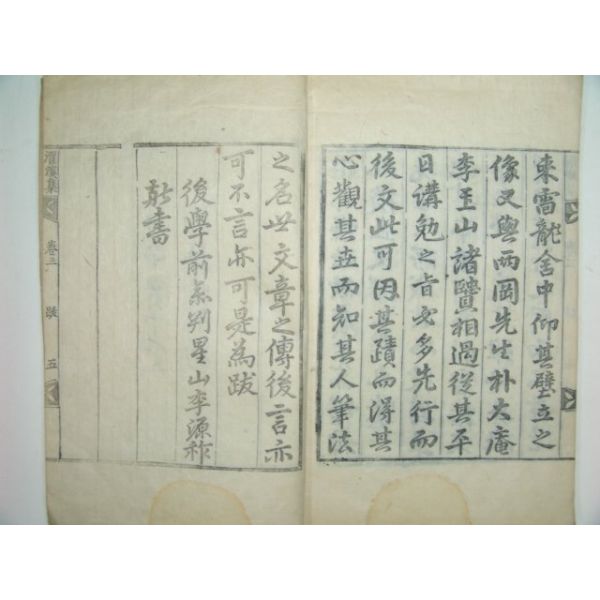 來雷龍舍中仰其壁立之
像又與兩岡先生朴大庵
李玉山諸賢相過從其平
日講勉之旨必多先行而
後文此可因其蹟而得其
心觀其迹而知其人筆法
之名世文章之傳後言亦
可不言亦可是為跋
後學前參判星山李源祚
敬書
集
卷三
跋
五